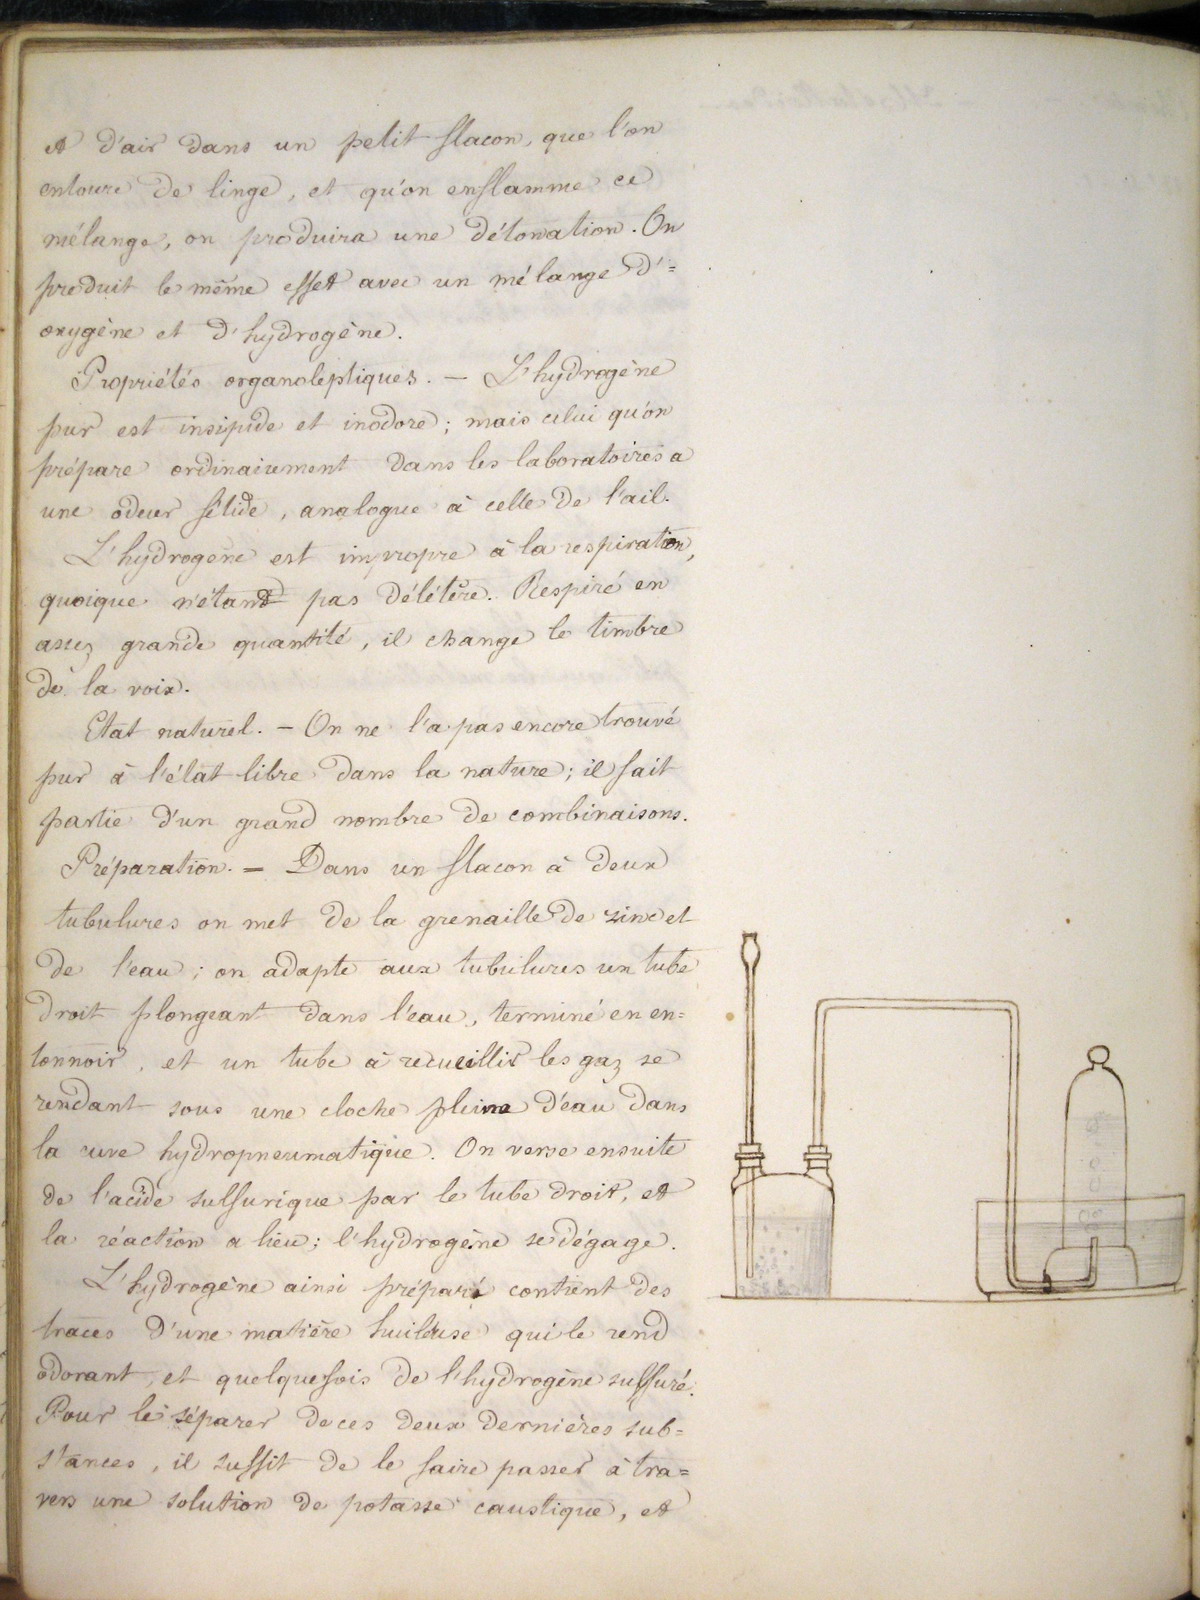 et d'air dans un petit flacon, que l'on
entoure de linge, et qu'on enflamme ce
mélange, on produira une détonation. On
produit le même effet avec un mélange d'=
oxygène et d'hydrogène.
Propriétés organoleptiques. — L'hydrogène
pur est insipide et inodore; mais celui qu'on
prépare ordinairement dans les laboratoires a
une odeur fétide, analogue à celle de l'ail.
L'hydrogène est impropre à la respiration,
quoique n'étant pas délétère. Respiré en
assez grande quantité, il change le timbre
de la voix.
Etat naturel. — On ne l'a pas encore trouvé
pur à l'état libre dans la nature; il fait
partie d'un grand nombre de combinaisons.
Préparation. — Dans un flacon à deux
tubulures on met de la grenaille de zinc et
de l'eau; on adapte aux tubulures un tube
droit plongeant dans l'eau, terminé en en=
tonnoir, et un tube à recueillir les gaz se
rendant sous une cloche pleine d'eau dans
la cuve hydropneumatique. On verse ensuite
de l'acide sulfurique par le tube droit, et
la réaction a lieu; l'hydrogène se dégage.
L'hydrogène ainsi préparé contient des
traces d'une matière huileuse qui le rend
odorant, et quelquefois de l'hydrogène sulfuré.
Pour le séparer de ces deux dernières sub=
stances, il suffit de le faire passer à tra=
vers une solution de potasse caustique, et